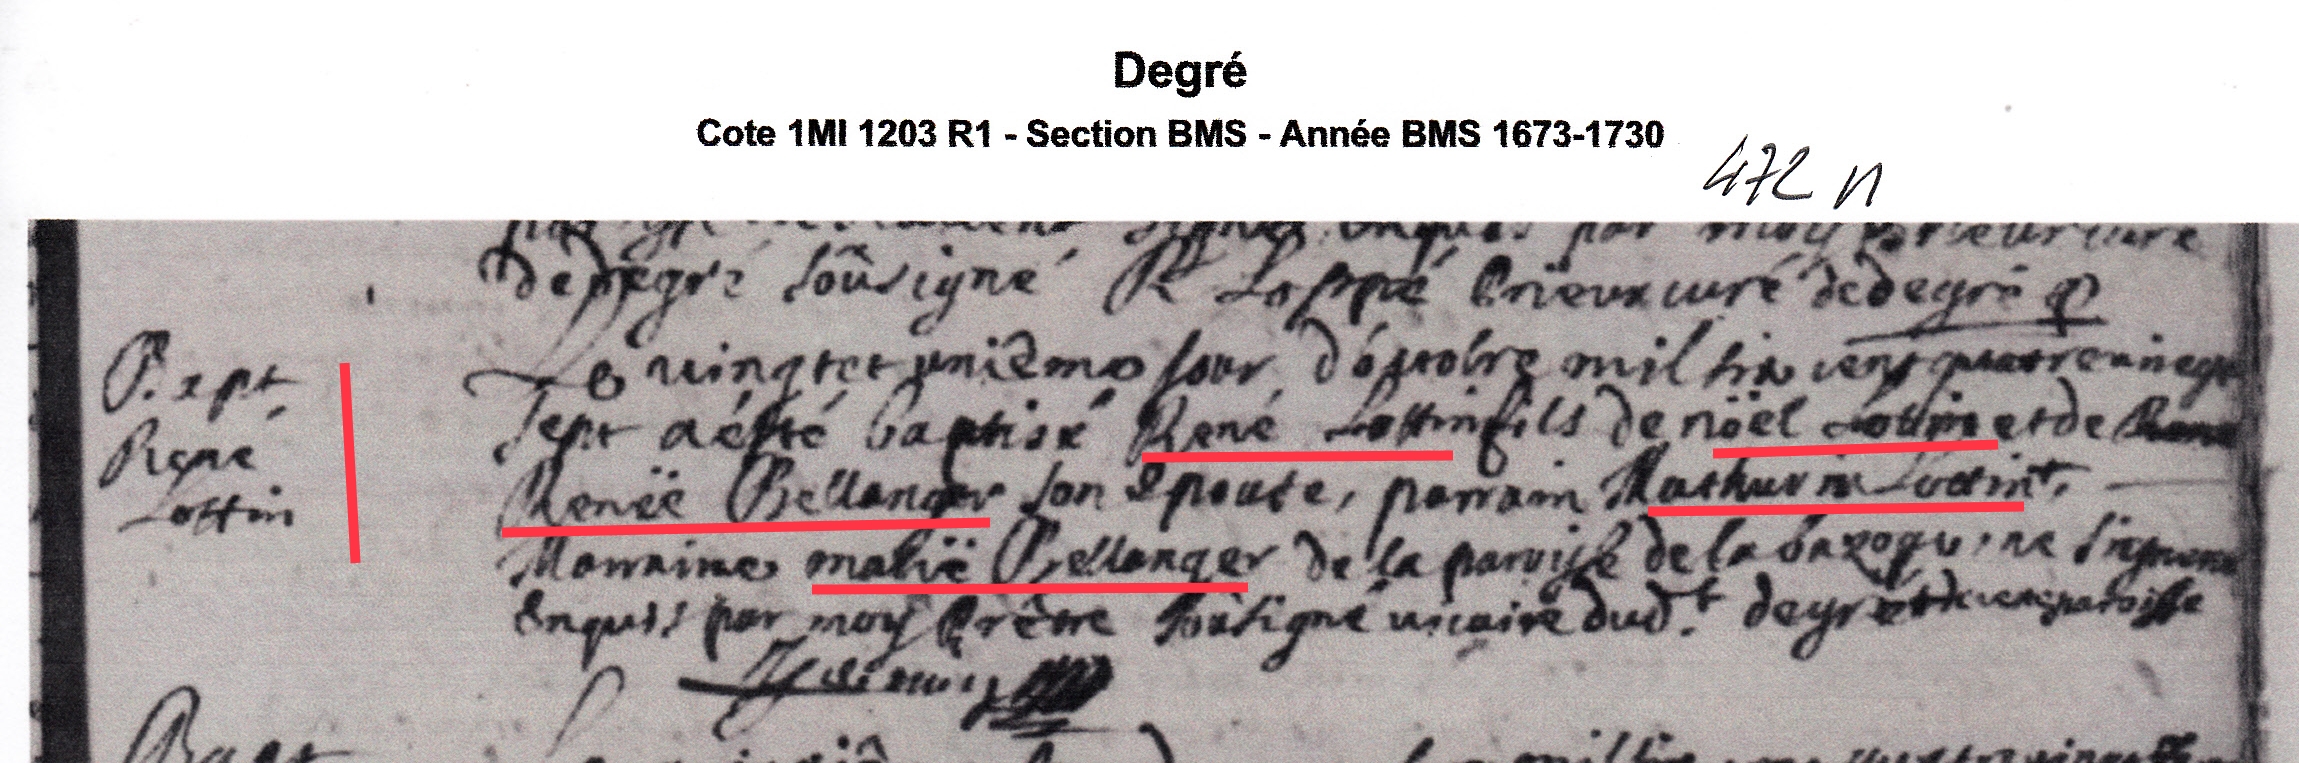 Degré
Cote 1MI 1203 R1 - Section BMS - Année BMS 1673-1730
472 n
enquis par moy prieur curé
de degré soûsigné R Loppé Prieur curé de degré
Bapt
René
Lottin
Le vingt et uniéme jour d'octobre mil six cens quatre vingt
sept a ésté baptisé René Lottin fils de nöel Lottin et de
Renëe Bellanger son épouse, parrain Mathurin Lottin,
Marraine marië Bellanger de la paroisse de la bazoque, ne signent
Enquis par moy Prêtre soûsigné vicaire dud.t degré
Bapt